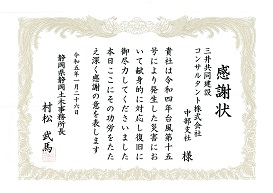 感謝状
三井共同建設
コンサルタント株式会社
中部支社 様
貴社は令和四年台風第十五
号により発生した災害にお
いて献身的に対応し復旧に
御尽力してくださいました
本日ここにその功労をたた
え深く感謝の意を表します
令和五年一月二十六日
静岡県静岡土木事務所長
村松 武馬